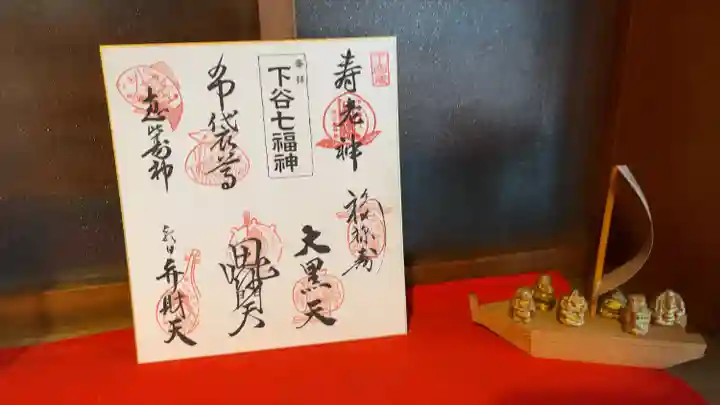 寿老神
福禄寿
参拝
下谷七福神
大黒天
布袋尊
毘沙門天
恵比寿神
朝日弁財天